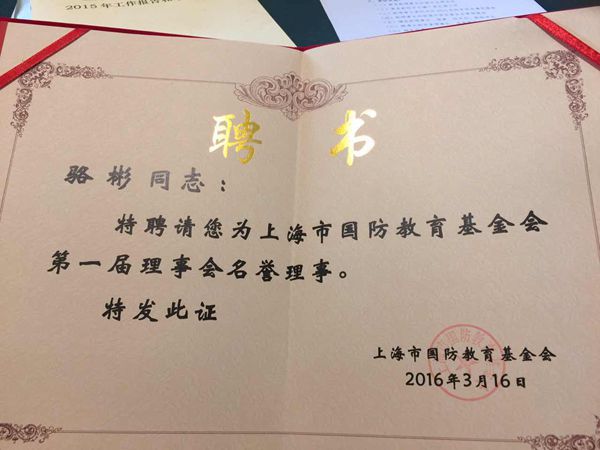 2015年工作报告
聘书
骆彬同志：
特聘请您为上海市国防教育基金会
第一届理事会名誉理事。
特发此证
上海市国防教育基金会
2016年3月16日